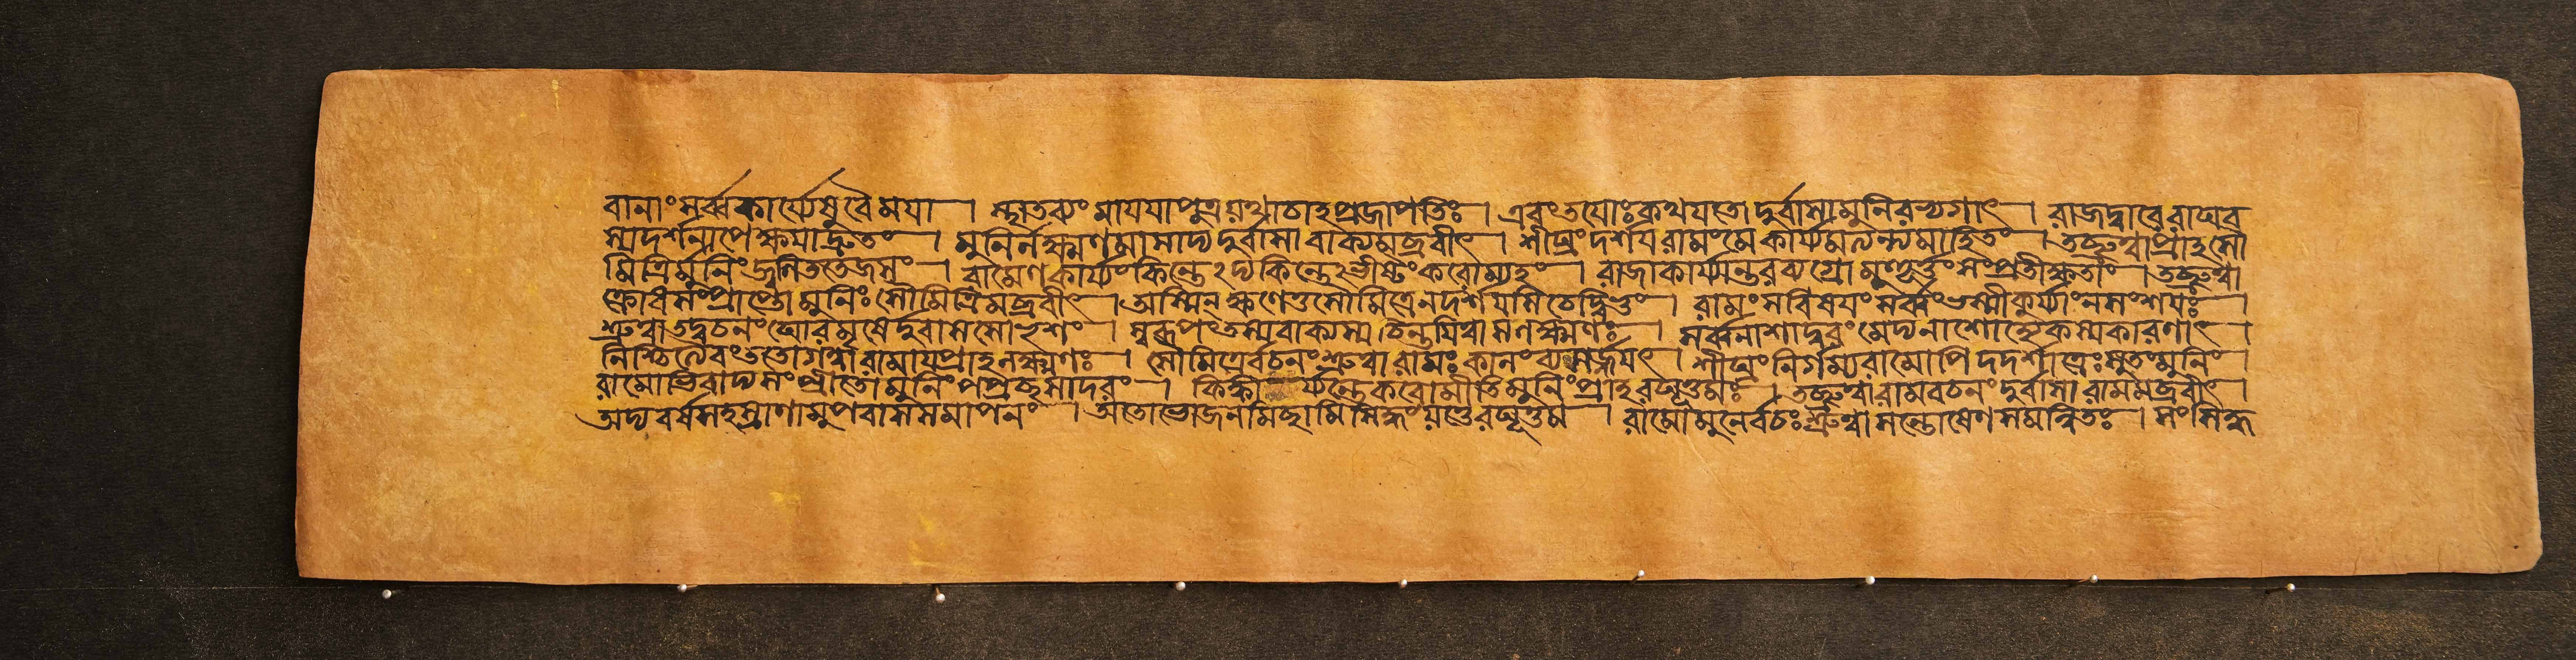 বানাং সর্ব্বকার্য্যেষু বৈ ময়া । স্থাতব্যং মায়যা পুত্র যথা চাহ প্রজাপতিঃ । এবং তয়োঃ কথযতো দুর্বাসা মুনিরভ্যগাৎ । রাজদ্বারে রাঘব
স্য দর্শনাপেক্ষযা দ্রুতং । মুনির্লক্ষ্মণমাসাদ্য দুর্বাসা বাক্যমব্রবীৎ । শীঘ্রং দর্শয রামং মে কার্য্যমত্যন্তমাহিতং । তচ্ছ্রুত্বা প্রাহ সৌ
মিত্রির্মুনিং জ্বলিততেজসং । রামেণ কার্য্যং কিন্তেঽদ্য কিন্তেঽভীষ্টং করোম্যহং । রাজা কার্য্যান্তরব্যগ্রো মুহূর্ত্তং সংপ্রতীক্ষতাং । তচ্ছ্রুত্বা
ক্রোধসংপ্রাপ্তো মুনিঃ সৌমিত্রিমব্রবীৎ । অস্মিন্ ক্ষণে তু সৌমিত্রে ন দর্শযসি চেদ্বিভুং । রামং সবিষযং সর্ব্বং ভস্মীকুর্য্যাং ন সংশযঃ ।
শ্রুত্বা তদ্বচনং ঘোরমৃষের্দুর্বাসসো ভৃশং । স্বরূপং তস্য বাক্যস্য চিন্তযিত্বা স লক্ষ্মণঃ । সর্ব্বনাশাদ্বরং মেদ্য নাশো হ্যেকস্য কারণাৎ ।
নিশ্চিত্যেবং ততো গত্বা রামায প্রাহ লক্ষ্মণঃ । সৌমিত্রের্বচনং শ্রুত্বা রামঃ কালং ব্যসর্জ্জযৎ । শীঘ্রং নির্গম্য রামোপি দদর্শাত্রেঃ সুতং মুনিং ।
রামোভিবাদ্য সংপ্রীতো মুনিং পপ্রচ্ছ সাদরং । র্য্যন্তে করোমীতি মুনিং প্রাহ রঘূত্তমঃ । তচ্ছ্রুত্বা রামবচনং দুর্বাসা রামমব্রবীৎ ।
অদ্য বর্ষসহস্রাণামুপবাসসমাপনং । অতো ভোজনমিচ্ছামি সিদ্ধং যত্তে রঘূত্তম । রামো মুনের্বচঃ শ্রুত্বা সন্তোষেণ সমন্বিতঃ । সং সিদ্ধ